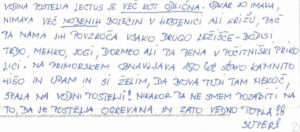 VODNA POSTELJA LECTUS JE VEČ KOT ODLIČNA. NIKAR JO IMAVA,
NIMAVA VEČ NOBENIH BOLEČIN V HRBTENICI ALI KRIŽU, PAČ
PA NAMA JIH POVZROČA VSAKO DRUGO LEŽIŠČE - BODISI
TRDO, MEHKO, JOGI, DORMEO ALI TA PENA V POČITNIŠKI PRIKO-
LICI. NA PRIMORSKEM OBNAVLJAVA LET STARO KAMNITO
HIŠO IN UPAM IN SI ŽELIM, DA BOVA TUDI TAM NEKOČ
SPALA NA VODNI POSTELJI! NIKAKOR PA NE SMEM POZABITI NA
TO, DA JE POSTELJA OGREVANA IN ZATO VEDNO TOPLA!!
SUPER!